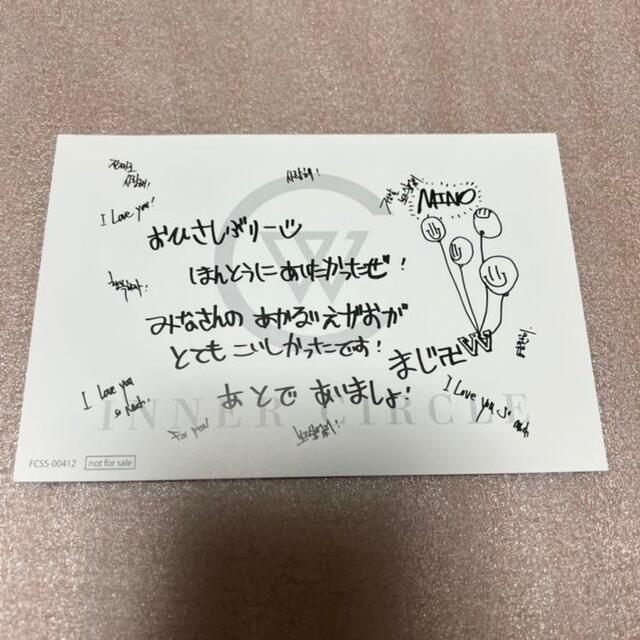 사랑해!
사랑해!
I Love you!
MINO
おひさしぶりー
ほんとうにあいたかったぜ!
みなさんの あかるいえがおが
とても こいしかったです!
まじ卍W
あとで あいましょ!
I Love you
so much!
I Love you so much
For you!
INNER CIRCLE
FCSS-00412
not for sale